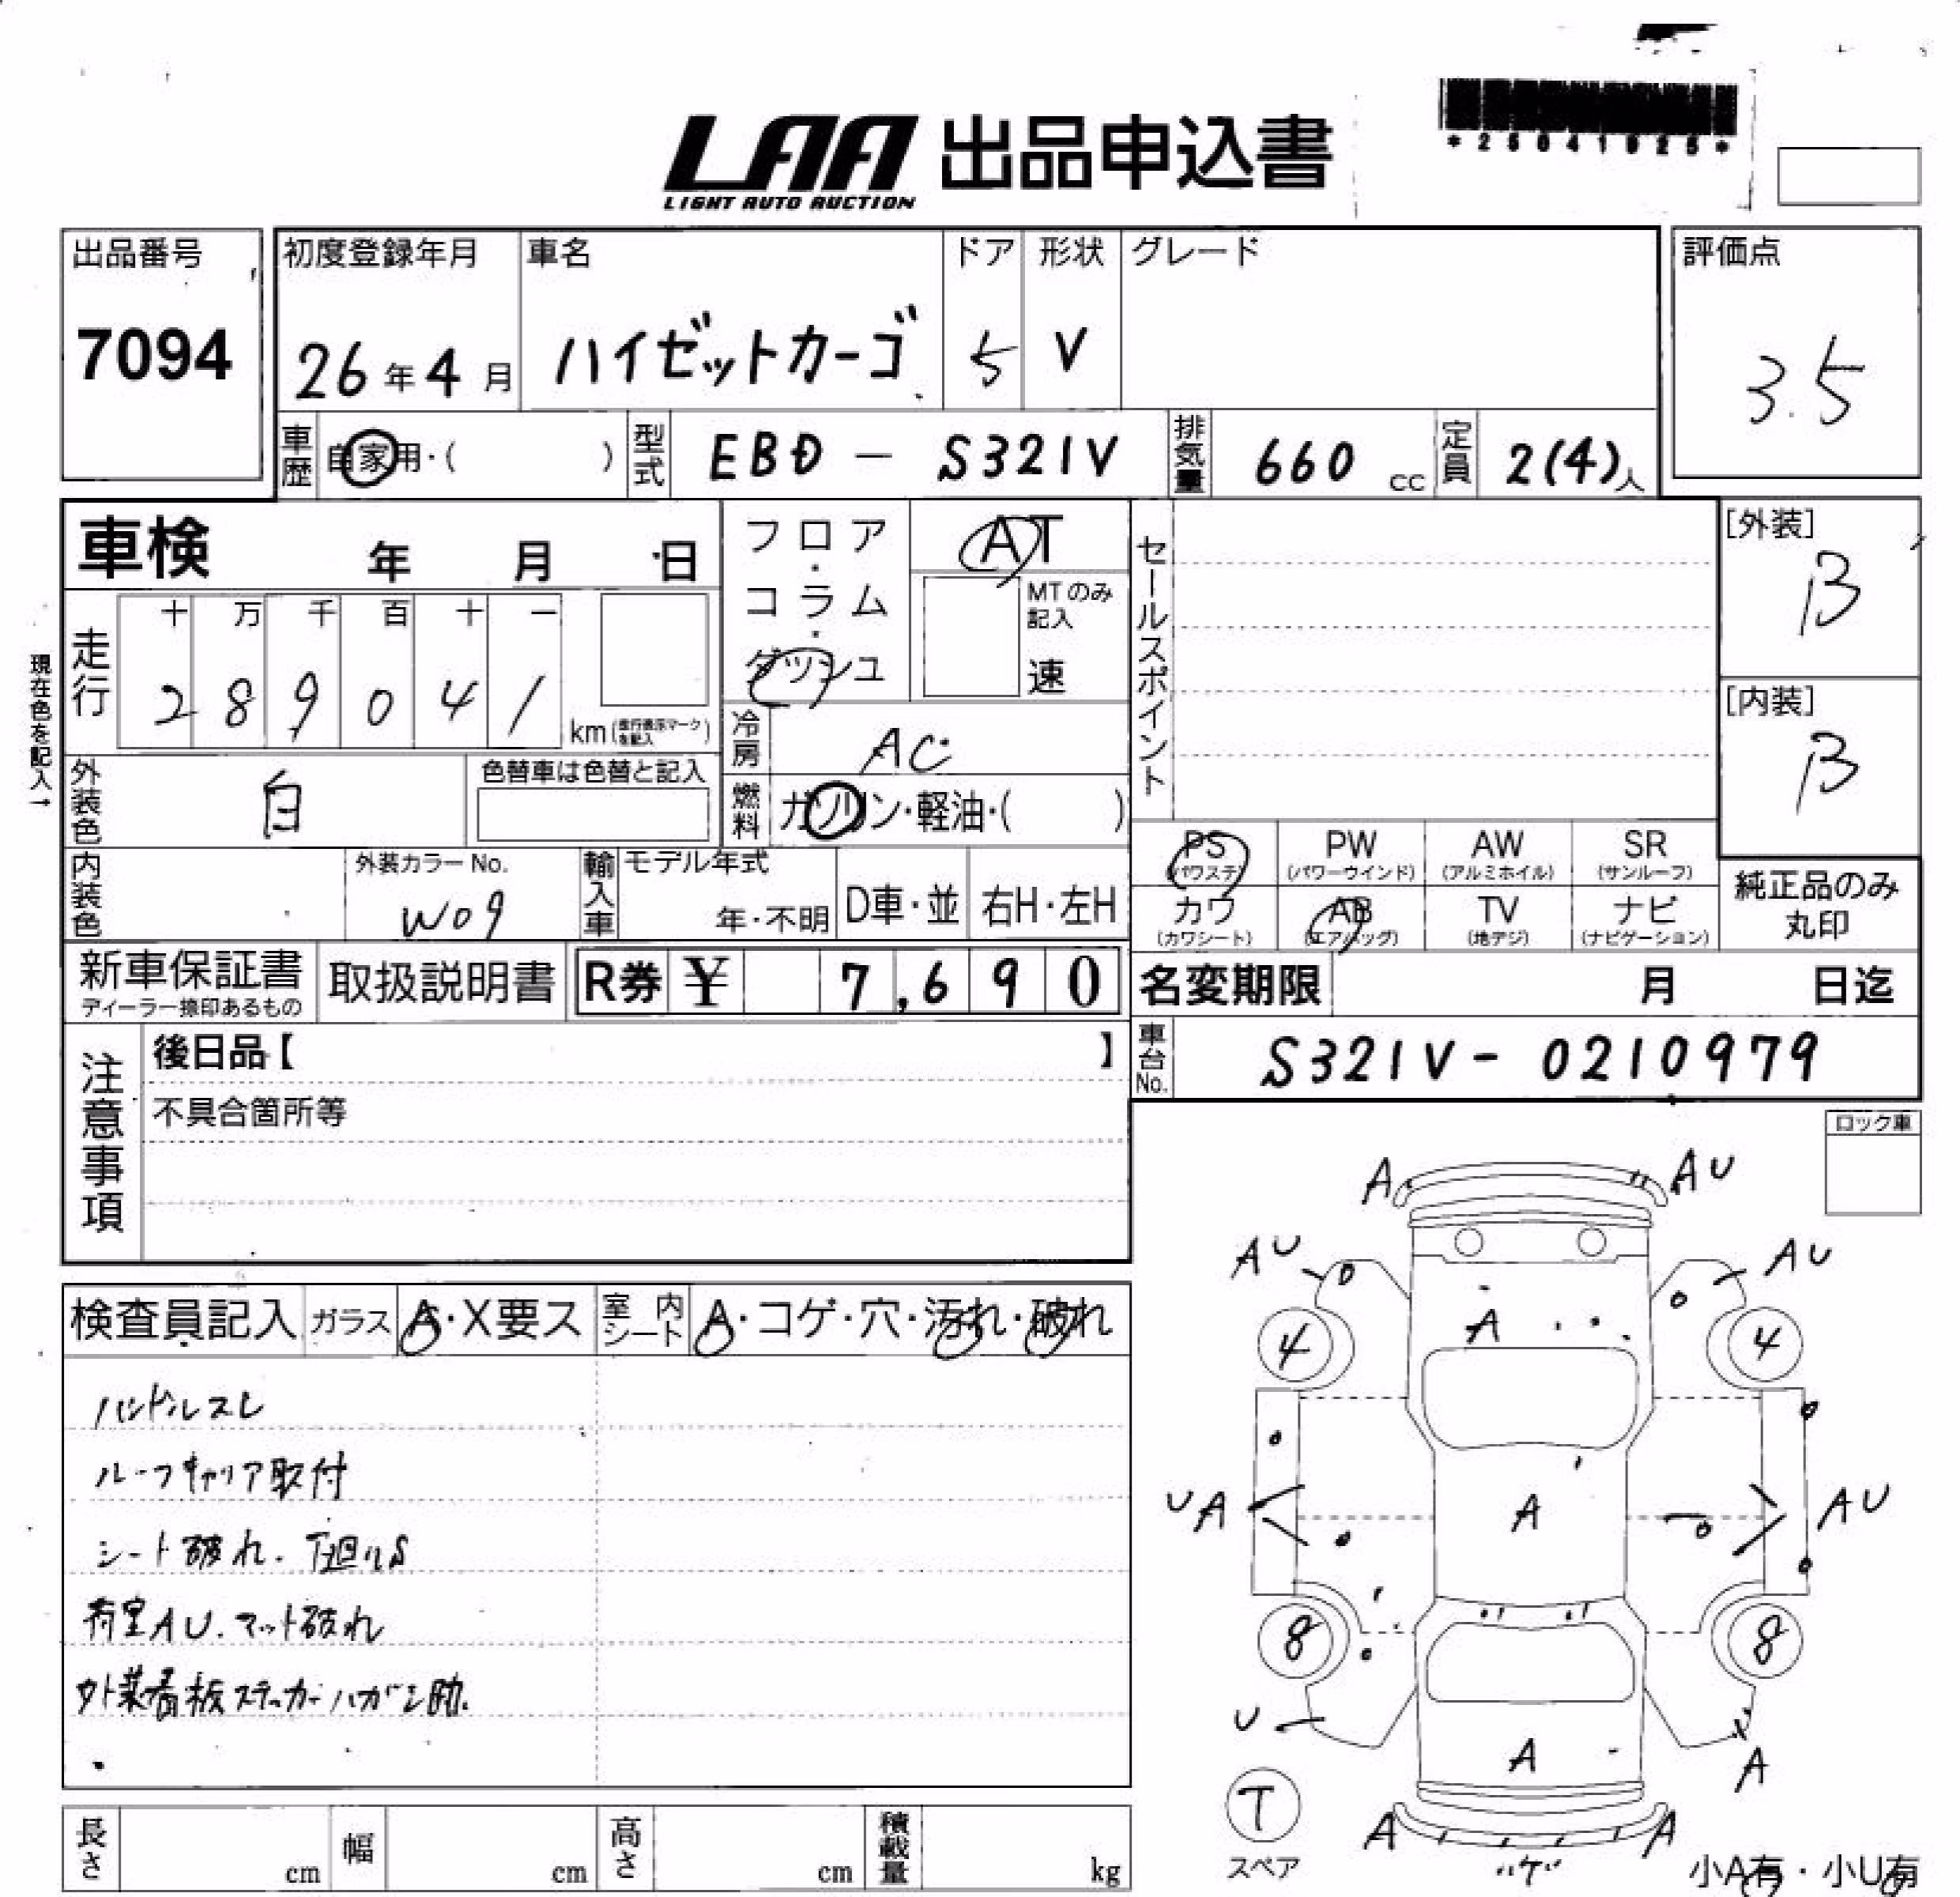 *25041025*
LAA 出品申込書
LIGHT AUTO AUCTION
出品番号 初度登録年月 車名 ドア 形状 グレード 評価点
7094 26年4月 ハイゼットカーゴ 5 V 3.5
車歴 自家用・( ) 型式 EBD - S321V 排気量 660 cc 定員 2(4)人
車検 年 月 日
フロア・コラム・ダッシュ
AT
MTのみ記入
速
セールスポイント
[外装]
B
[内装]
B
現在色を記入→
走行 十 万 千 百 十 一
2 8 9 0 4 1
km(走行表示マークを記入)
冷房 AC
外装色 白 色替車は色替と記入
燃料 ガソリン・軽油・( )
内装色 外装カラーNo. W09
輸入車 モデル年式 年・不明 D車・並 右H・左H
PS (パワステ) PW (パワーウインド) AW (アルミホイル) SR (サンルーフ)
カワ (カワシート) AB (エアバッグ) TV (地デジ) ナビ (ナビゲーション)
純正品のみ丸印
新車保証書 ディーラー捺印あるもの 取扱説明書 R券 ¥ 7,690
名変期限 月 日迄
車台No. S321V-0210979
注意事項
後日品【 】
不具合箇所等
ロック車
検査員記入 ガラス A・X要ス 室内シート A・コゲ・穴・汚れ・破れ
ハンドルスレ
ルーフキャリア取付
シート破れ. 下廻りS
荷室AU. マット破れ
外装看板ステッカーハガシ跡.
A AU
AU AU
4 A 4
UA A AU
8 8
U A A
T
スペア
A A
ハゲ
小A有・小U有
長さ cm 幅 cm 高さ cm 積載量 kg